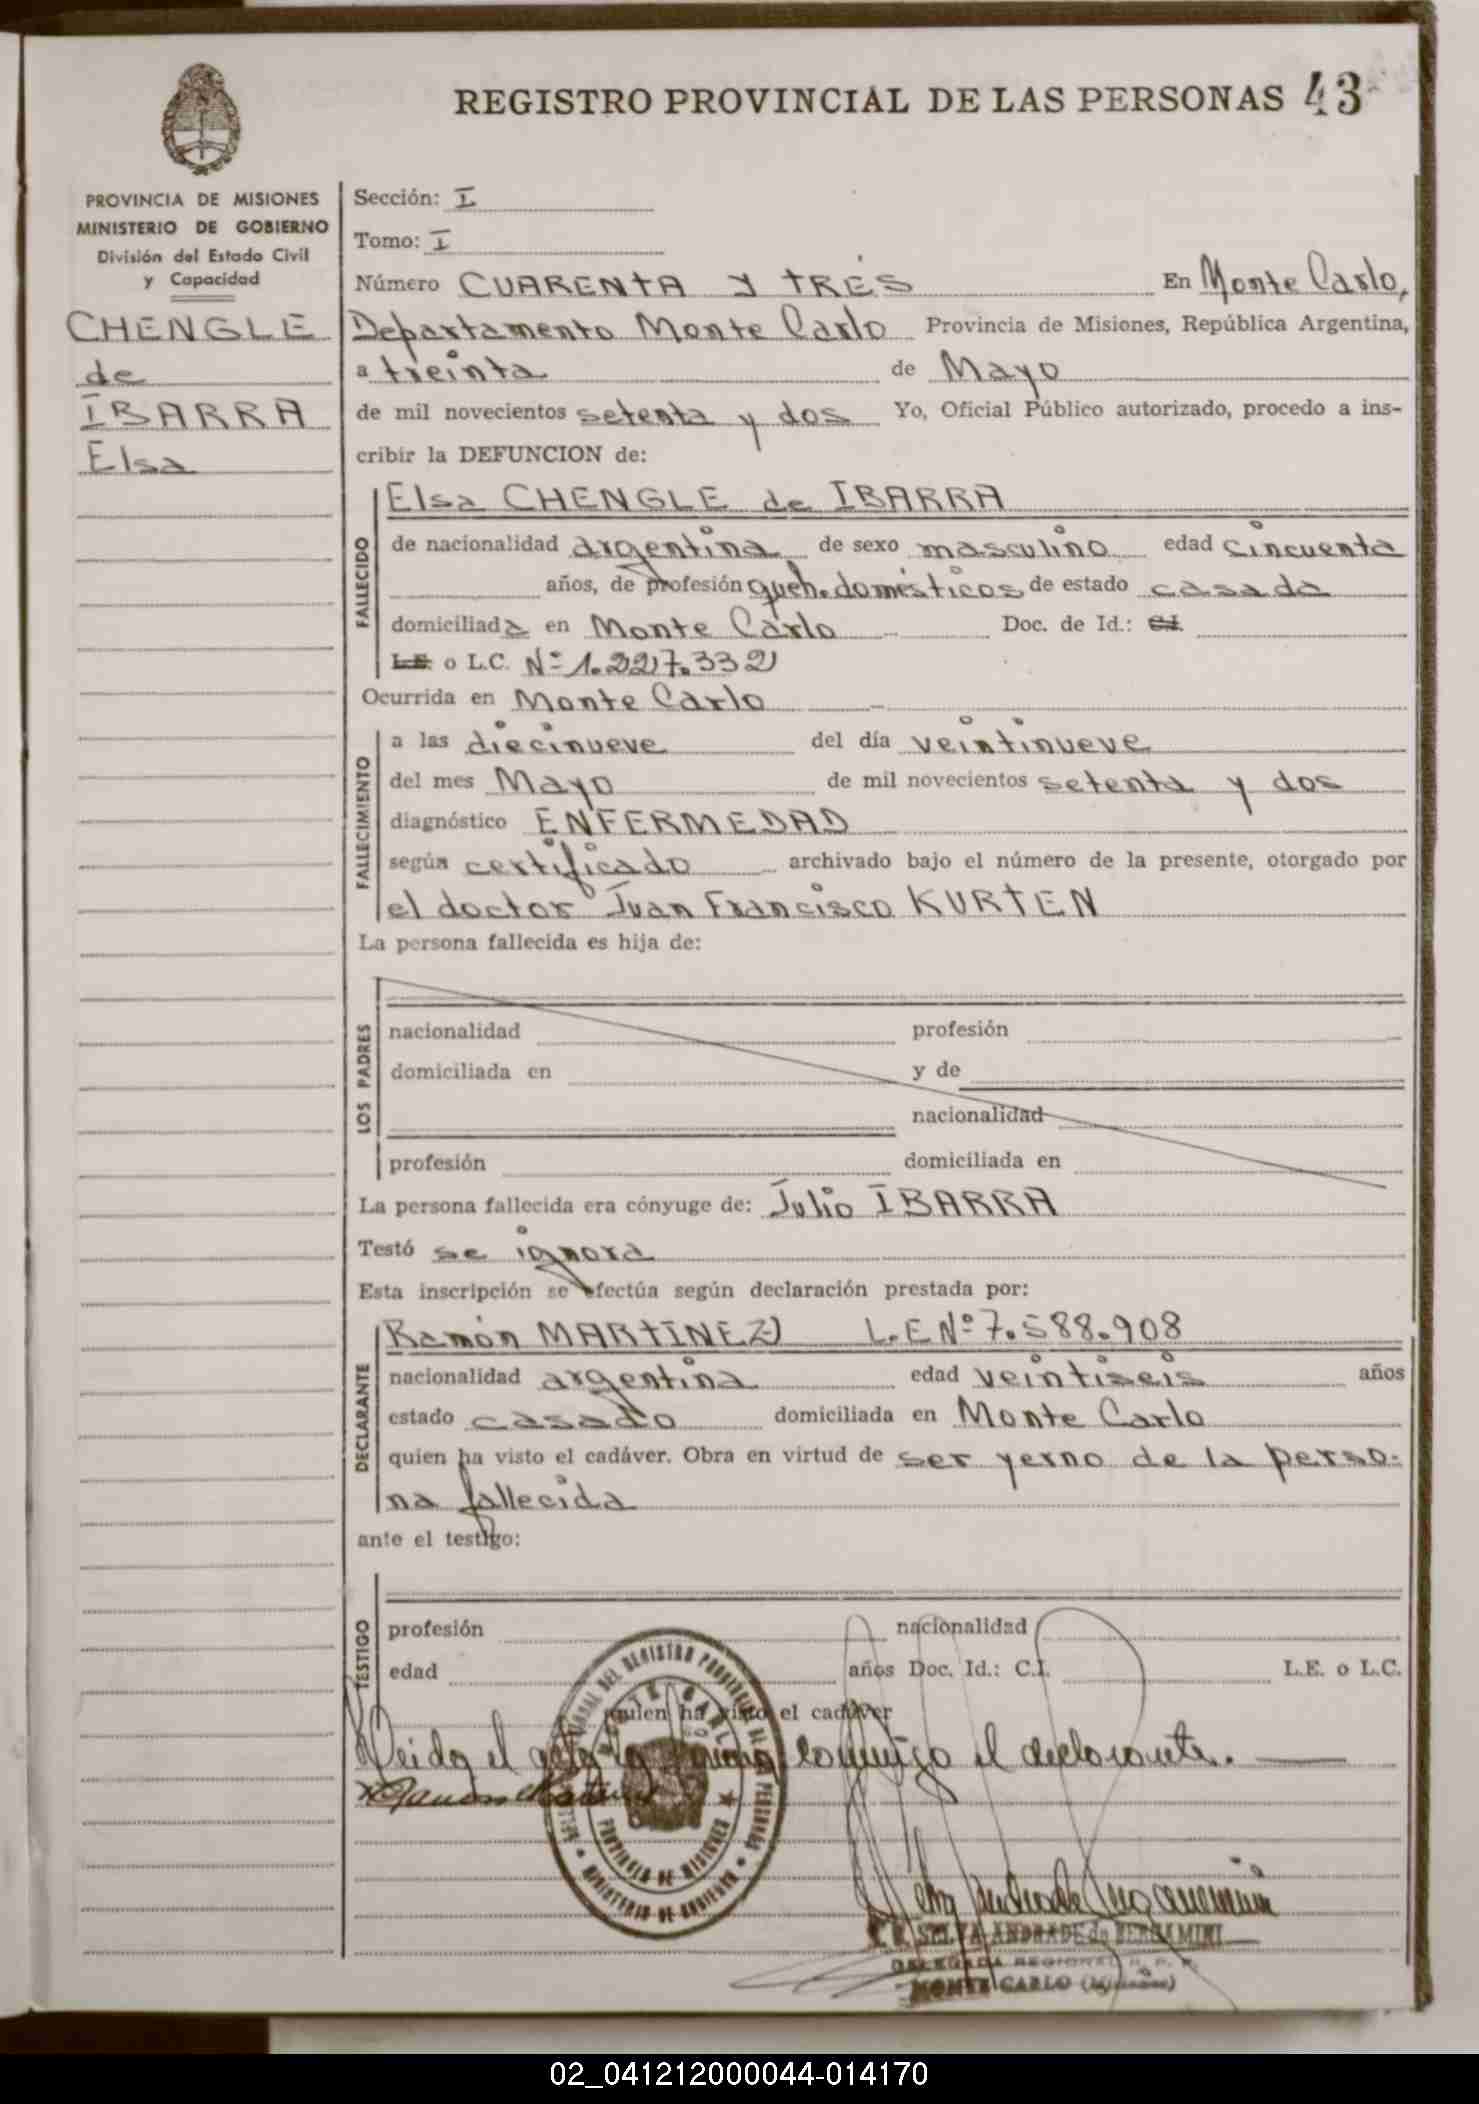 REGISTRO PROVINCIAL DE LAS PERSONAS 43
PROVINCIA DE MISIONES
MINISTERIO DE GOBIERNO
División del Estado Civil
y Capacidad
CHENGLE
de
IBARRA
Elsa
Sección: I
Tomo: I
Número CUARENTA Y TRES En Monte Carlo,
Departamento Monte Carlo Provincia de Misiones, República Argentina,
a treinta de Mayo
de mil novecientos setenta y dos Yo, Oficial Público autorizado, procedo a ins-
cribir la DEFUNCION de:
FALLECIDO
Elsa CHENGLE de IBARRA
de nacionalidad argentina de sexo masculino edad cincuenta
años, de profesión queh. domésticos de estado casada
domiciliada en Monte Carlo Doc. de Id.: C.I.
L.E. o L.C. Nº 1.227.332
Ocurrida en Monte Carlo
FALLECIMIENTO
a las diecinueve del día veintinueve
del mes Mayo de mil novecientos setenta y dos
diagnóstico ENFERMEDAD
según certificado archivado bajo el número de la presente, otorgado por
el doctor Juan Francisco KURTEN
La persona fallecida es hija de:
LOS PADRES
nacionalidad profesión
domiciliada en y de
nacionalidad
profesión domiciliada en
La persona fallecida era cónyuge de: Julio IBARRA
Testó se ignora
Esta inscripción se efectúa según declaración prestada por:
DECLARANTE
Ramón MARTINEZ L.E Nº 7.588.908
nacionalidad argentina edad veintiseis años
estado casado domiciliada en Monte Carlo
quien ha visto el cadáver. Obra en virtud de ser yerno de la perso-
na fallecida
ante el testigo:
TESTIGO
profesión nacionalidad
edad años Doc. Id.: C.I. L.E. o L.C.
quien ha visto el cadáver
Leida el acta la firma conmigo el declarante.
Ramon Martinez
DEL REGISTRO PROVINCIAL DE LAS PERSONAS
MONTE CARLO
PROVINCIA DE MISIONES
MINISTERIO DE GOBIERNO
SELVA ANDRADE de BERGAMINI
DELEGADA REGIONAL R. P. P.
MONTE CARLO (Misiones)
02_041212000044-014170